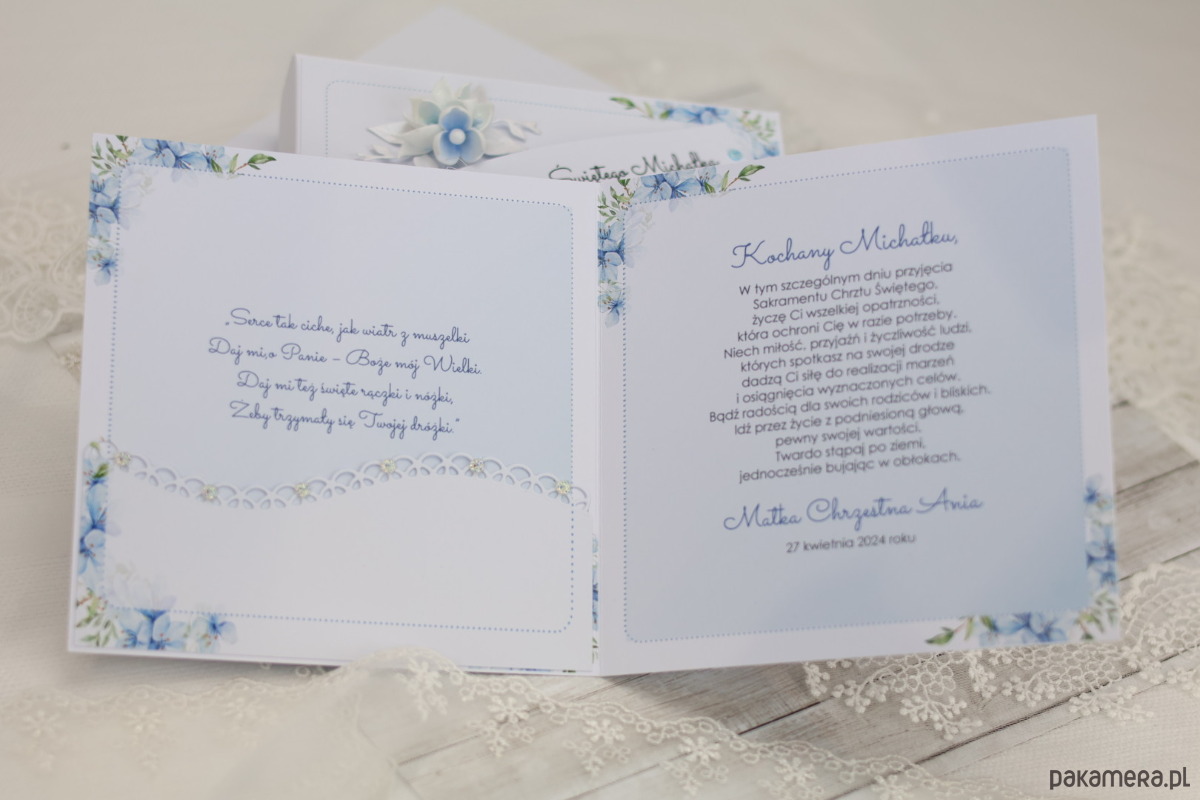 Świętego Michałka
„Serce tak ciche, jak wiatr z muszelki
Daj mi,o Panie – Boże mój Wielki.
Daj mi też święte rączki i nóżki,
Żeby trzymały się Twojej dróżki."
Kochany Michałku,
W tym szczególnym dniu przyjęcia
Sakramentu Chrztu Świętego,
życzę Ci wszelkiej opatrzności,
która ochroni Cię w razie potrzeby.
Niech miłość, przyjaźń i życzliwość ludzi,
których spotkasz na swojej drodze
dadzą Ci siłę do realizacji marzeń
i osiągnięcia wyznaczonych celów.
Bądź radością dla swoich rodziców i bliskich.
Idź przez życie z podniesioną głową,
pewny swojej wartości.
Twardo stąpaj po ziemi,
jednocześnie bujając w obłokach.
Matka Chrzestna Ania
27 kwietnia 2024 roku
pakamera.pl